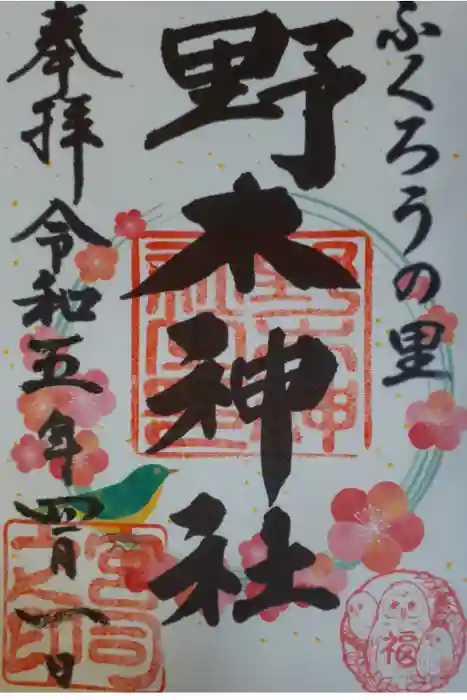 ふくろうの里
野木神社
奉拝 令和五年四月一日
野木神社印
宮司之印
福